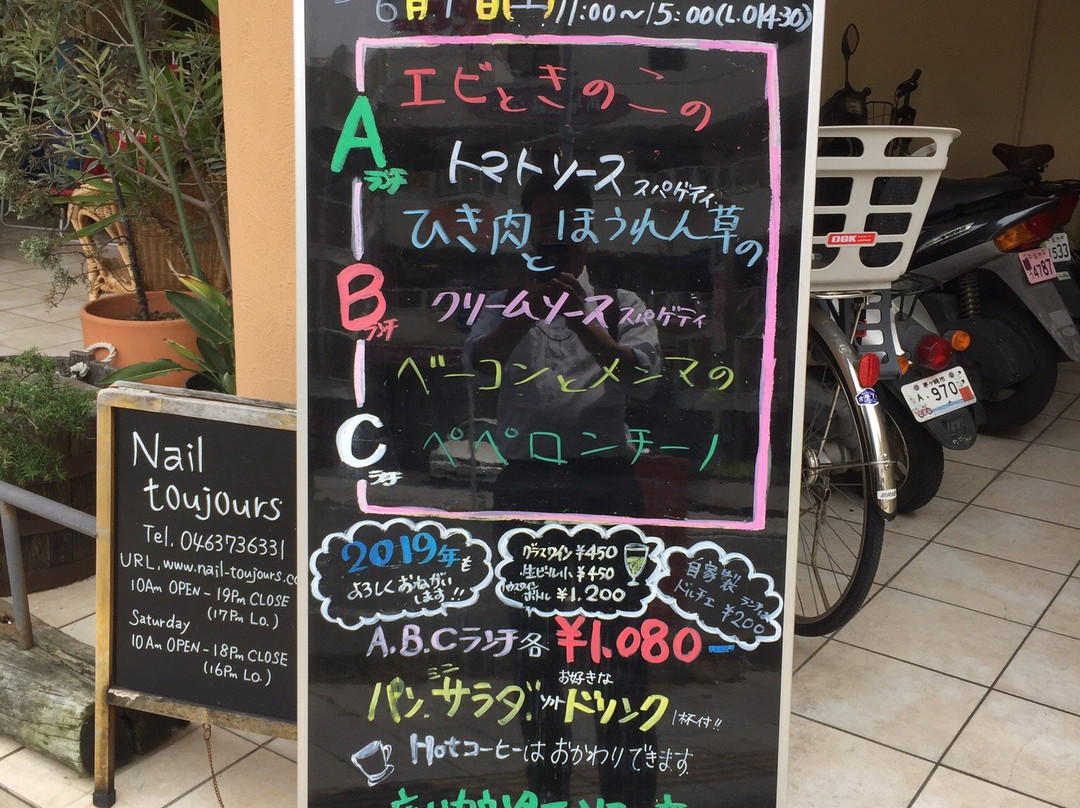 6月 日(土) 11:00~15:00(L.O14:30)
A ランチ
エビときのこの
トマトソース スパゲティ
B ランチ
ひき肉とほうれん草の
クリームソース スパゲティ
C ランチ
ベーコンとメンマの
ペペロンチーノ
2019年も
よろしくおねがい
します!!
グラスワイン ¥450
生ビール小 ¥450
ハウスワイン
ボトル ¥1.200
自家製
ドルチェ
ランチは
¥200
A.B.Cランチ各 ¥1.080
パン.ミニサラダ.
お好きな
ソフトドリンク 1杯付!!
Hotコーヒーはおかわりできます
Nail
toujours
Tel. 0463736331
URL.www.nail-toujours.co
10Am OPEN - 19Pm CLOSE
(17Pm LO.)
Saturday
10Am OPEN - 18Pm CLOSE
(16Pm LO.)
OGK
4787
533
茅ヶ崎市
A・970